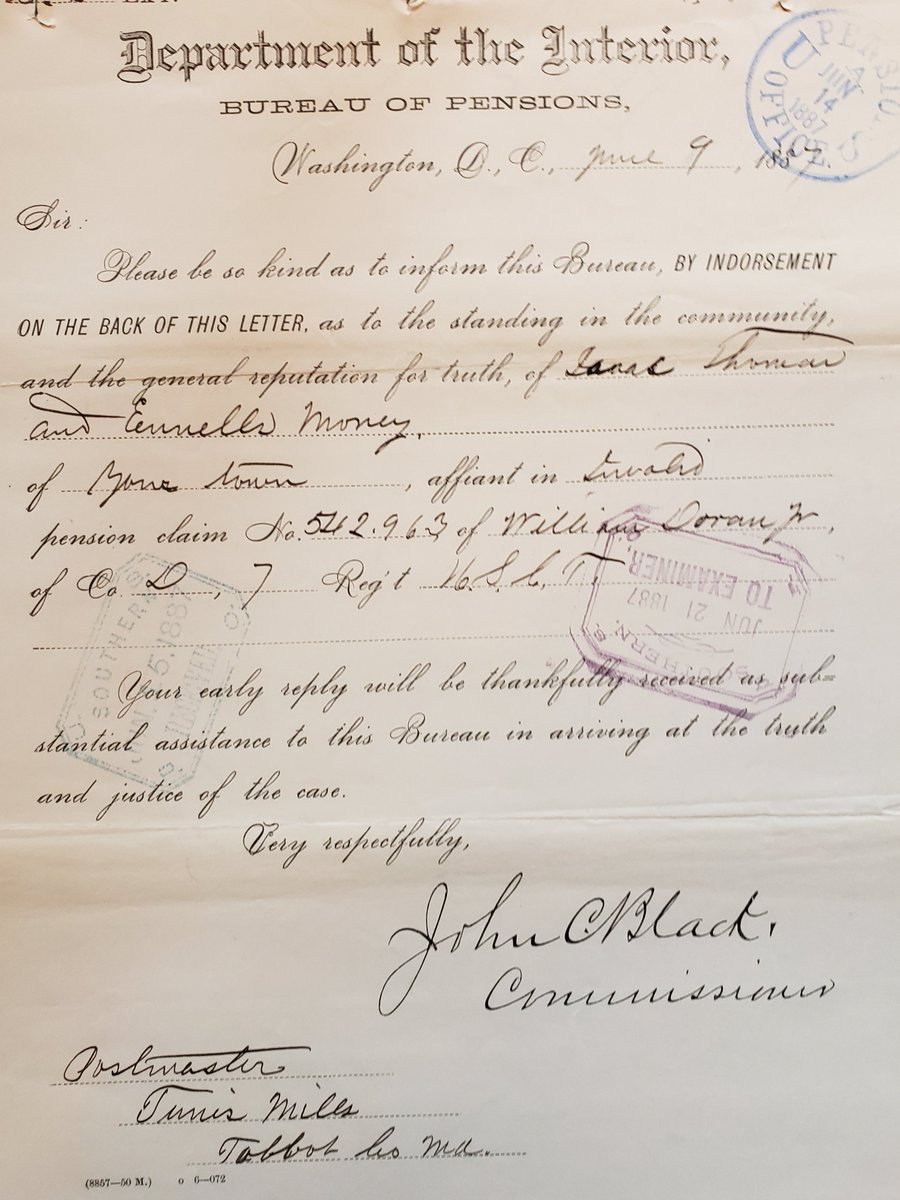 Department of the Interior,
BUREAU OF PENSIONS,
PENSION OFFICE
U S
JUN
14
1887
Washington, D., C., June 9, 1887.
Sir:
Please be so kind as to inform this Bureau, BY INDORSEMENT
ON THE BACK OF THIS LETTER, as to the standing in the community,
and the general reputation for truth, of Isaac Thomas
and Ennells Money,
of Your town, affiant in Invalid
pension claim No. 542.963 of William Doran Jr,
of Co. D, 7 Reg't U.S.C.T.
TO EXAMINER,
JUN 21 1887
SOUTHERN
SOUTHERN
1887
Your early reply will be thankfully received as sub=
stantial assistance to this Bureau in arriving at the truth
and justice of the case.
Very respectfully,
John C Black.
Commissioner
Postmaster
Tunis Mills
Talbot Co Md.
(8857—50 M.) o 6—072